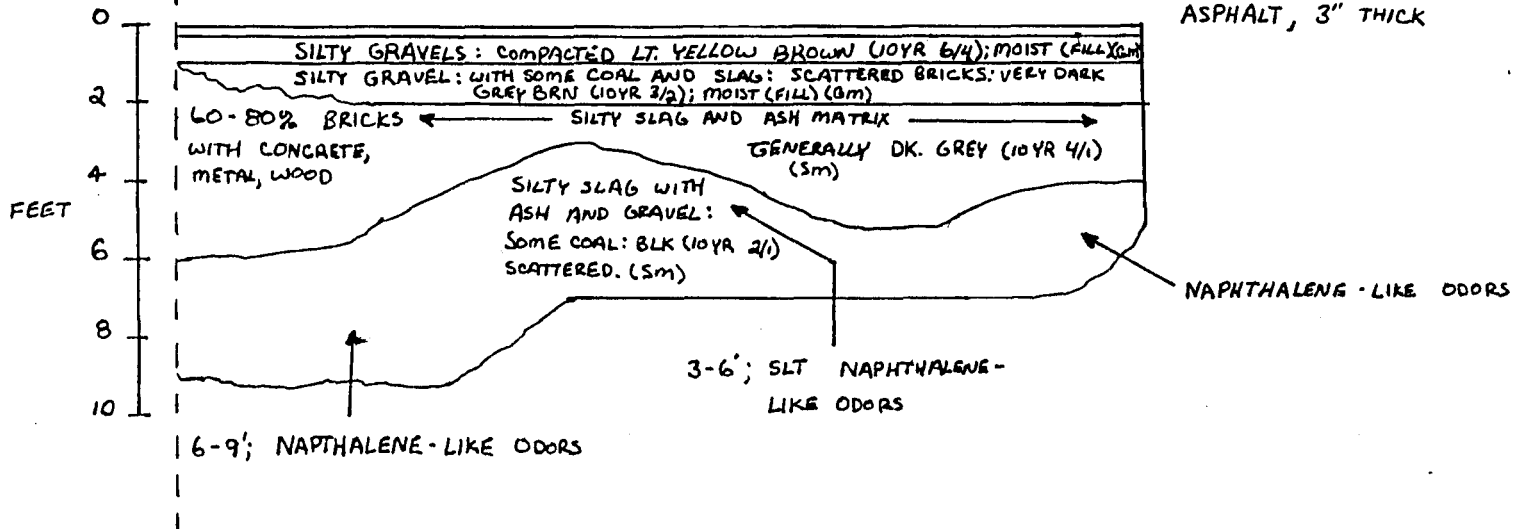 0
ASPHALT, 3" THICK
SILTY GRAVELS: COMPACTED LT. YELLOW BROWN (10YR 6/4); MOIST (FILL)(Gm)
SILTY GRAVEL: WITH SOME COAL AND SLAG: SCATTERED BRICKS: VERY DARK
GREY BRN (10YR 3/2); MOIST (FILL) (Gm)
2
60-80% BRICKS
SILTY SLAG AND ASH MATRIX
WITH CONCRETE,
METAL, WOOD
GENERALLY DK. GREY (10YR 4/1)
(Sm)
4
FEET
SILTY SLAG WITH
ASH AND GRAVEL:
SOME COAL: BLK (10YR 2/1)
SCATTERED. (Sm)
6
NAPHTHALENE-LIKE ODORS
8
3-6'; SLT NAPHTHALENE-
LIKE ODORS
10
6-9'; NAPTHALENE-LIKE ODORS